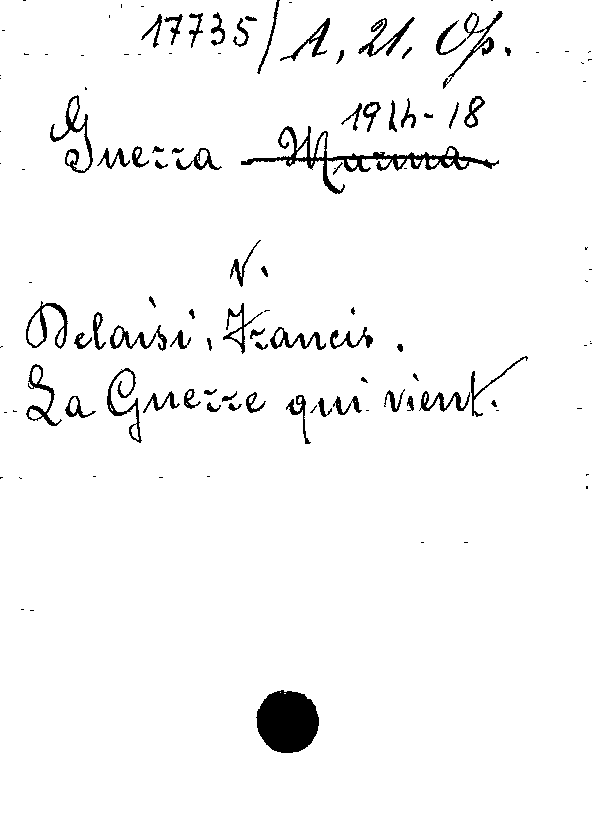 17735/ A, 21, Op.
1914-18
Guerra - Marina.
v.
Delaisi, Francis.
La Guerre qui vient.